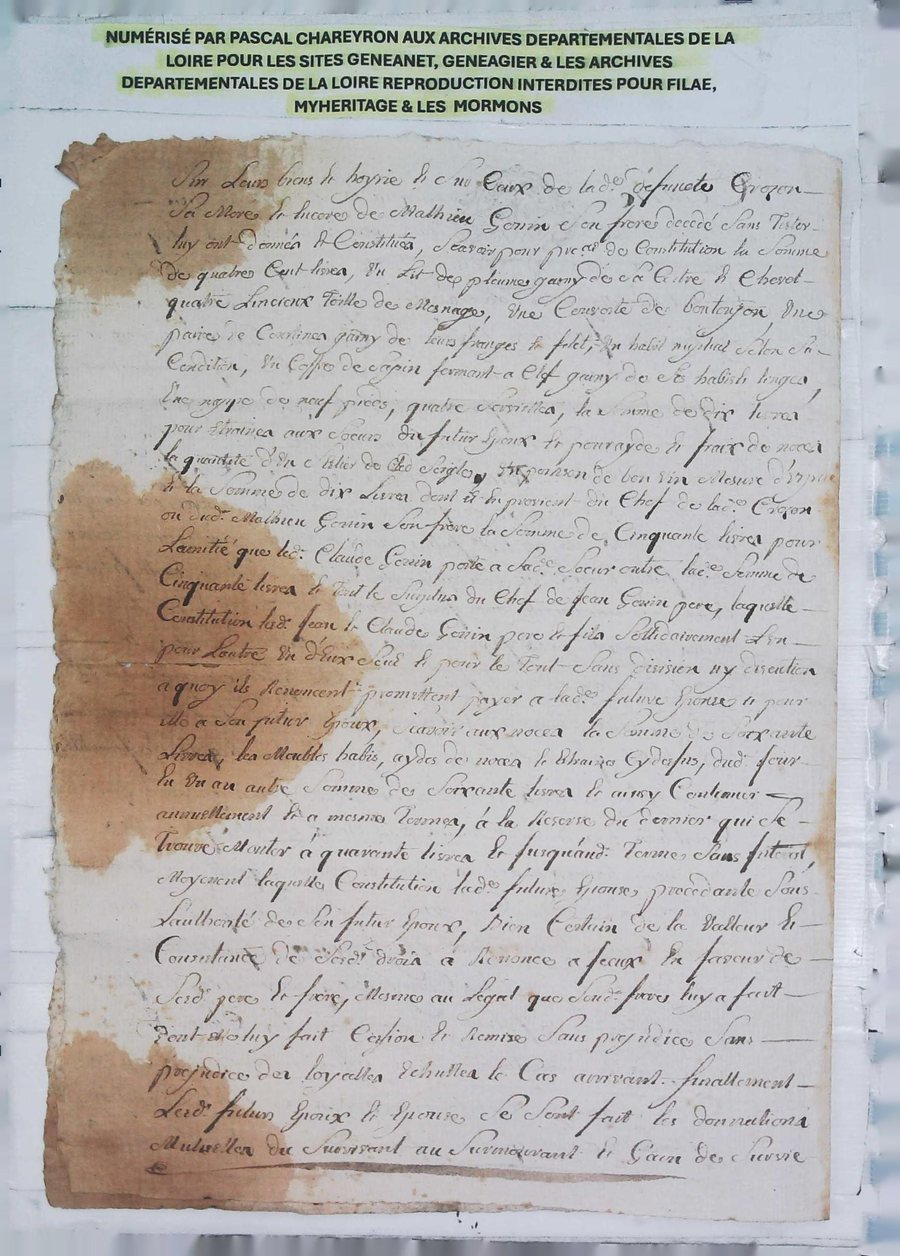 NUMÉRISÉ PAR PASCAL CHAREYRON AUX ARCHIVES DEPARTEMENTALES DE LA
LOIRE POUR LES SITES GENEANET, GENEAGIER & LES ARCHIVES
DEPARTEMENTALES DE LA LOIRE REPRODUCTION INTERDITES POUR FILAE,
MYHERITAGE & LES MORMONS
Sur Leurs biens et hoyrie et Ceux de lad.e deffuncte Crozon
Sa Mere et encore de Mathieu Gonin Son frere decedé Sans Tester
luy ont donnés et Constitués, Scavoir pour de Constitution la Somme
de quatres Cent livres, Un Lit de plume garny de Sa Coitre et Chevet
quatre Linceux Toille de Mesnage, Une Couverte de Une
paire de Courtines garny de leurs franges et filet, Un habit nuptial Selon Sa
Condition, Un Coffre de Sapin fermant a Clef garny de Ses habits et linges,
Une nappe de neuf pieds, quatre Serviettes, la Somme de dix livres
pour Etraines aux Soeurs du futur Epoux et pour ayde et fraix de noces
la quantité d'Un Setier de bled Seigle, Un de bon vin Mesure
et la Somme de dix Livres dont il En provient du Chef de lad.e Crozon
ou dud. Mathieu Gonin Son frere la Somme de Cinquante livres pour
Lamitié que led. Claude Gonin porte a Sad.e Soeur outre lad.e Somme de
Cinquante livres et Tout le Surplus du Chef de Jean Gonin pere, laquelle
Constitution lesd. Jean et Claude Gonin pere et fils Sollidairement L'un
pour Lautre Un d'Eux Seul et pour le Tout Sans division ny discution
a quoy ils Renoncent promettent payer a lad.e future Epouse et pour
elle a Son futur Epoux, Scavoir aux noces la Somme de Soixante
Livres, les Meubles habis, aydes de noces et Etraines Cydessus, dud. Jour
En Un an autre Somme de Soixante livres et aussy Continuer
annuellement et a mesmes Termes, à la Reserve du dernier qui Se
Trouve Monter à quarante livres et Jusquaud. Terme Sans Interet,
Moyenent laquelle Constitution lad.e future Epouse procedante Sous
L'authorité de Son futur Epoux, Bien Certain de la Valleur et
Consistance de Sesd. droits à Renoncé a Iceux En faveur de
Sesd. pere et frere, Mesme au Legat que Sond. frere luy a fait
dont Elle luy fait Cession et Remise Sans prejudice Sans
prejudice des loyalles Echuttes le Cas arrivant. finallement
Lesd. futurs Epoux et Epouse Se Sont fait les donnations
Mutuelles du Survivant au Surmourant et Gain de Survie